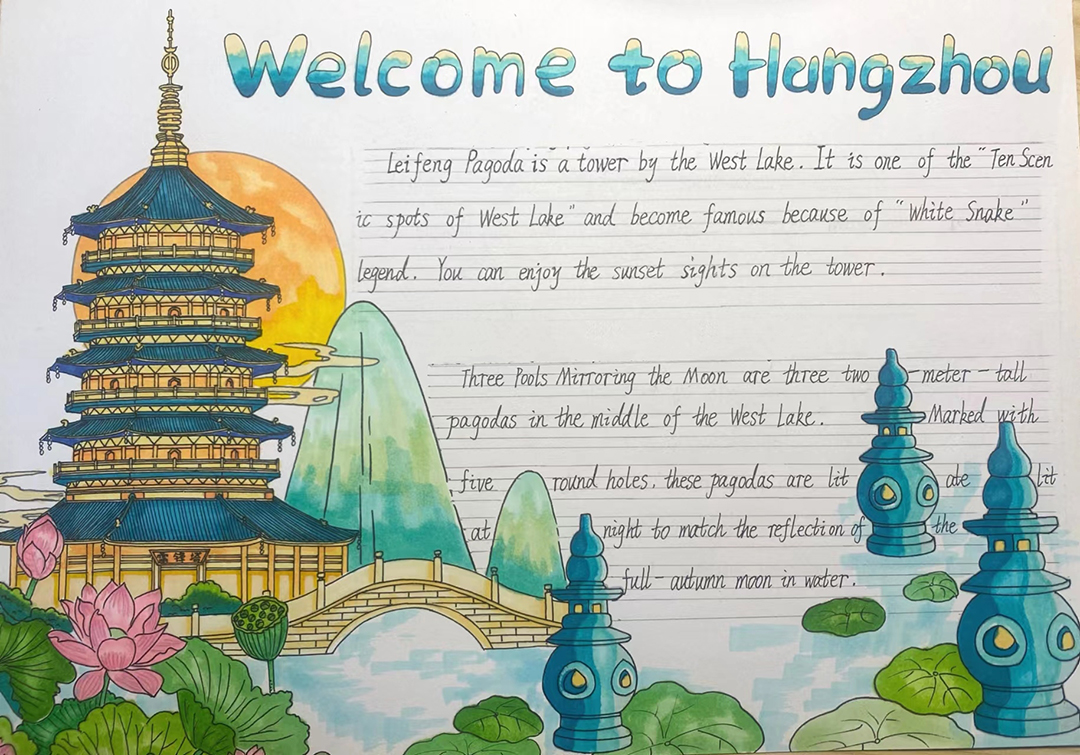 Welcome to Hangzhou
Leifeng Pagoda is a tower by the West Lake. It is one of the "Ten Scen
ic spots of West Lake" and become famous because of "White Snake"
legend. You can enjoy the sunset sights on the tower.
Three Pools Mirroring the Moon are three two-meter-tall
pagodas in the middle of the West Lake. Marked with
five round holes, these pagodas are lit ate lit
at night to match the reflection of the
full-autumn moon in water.